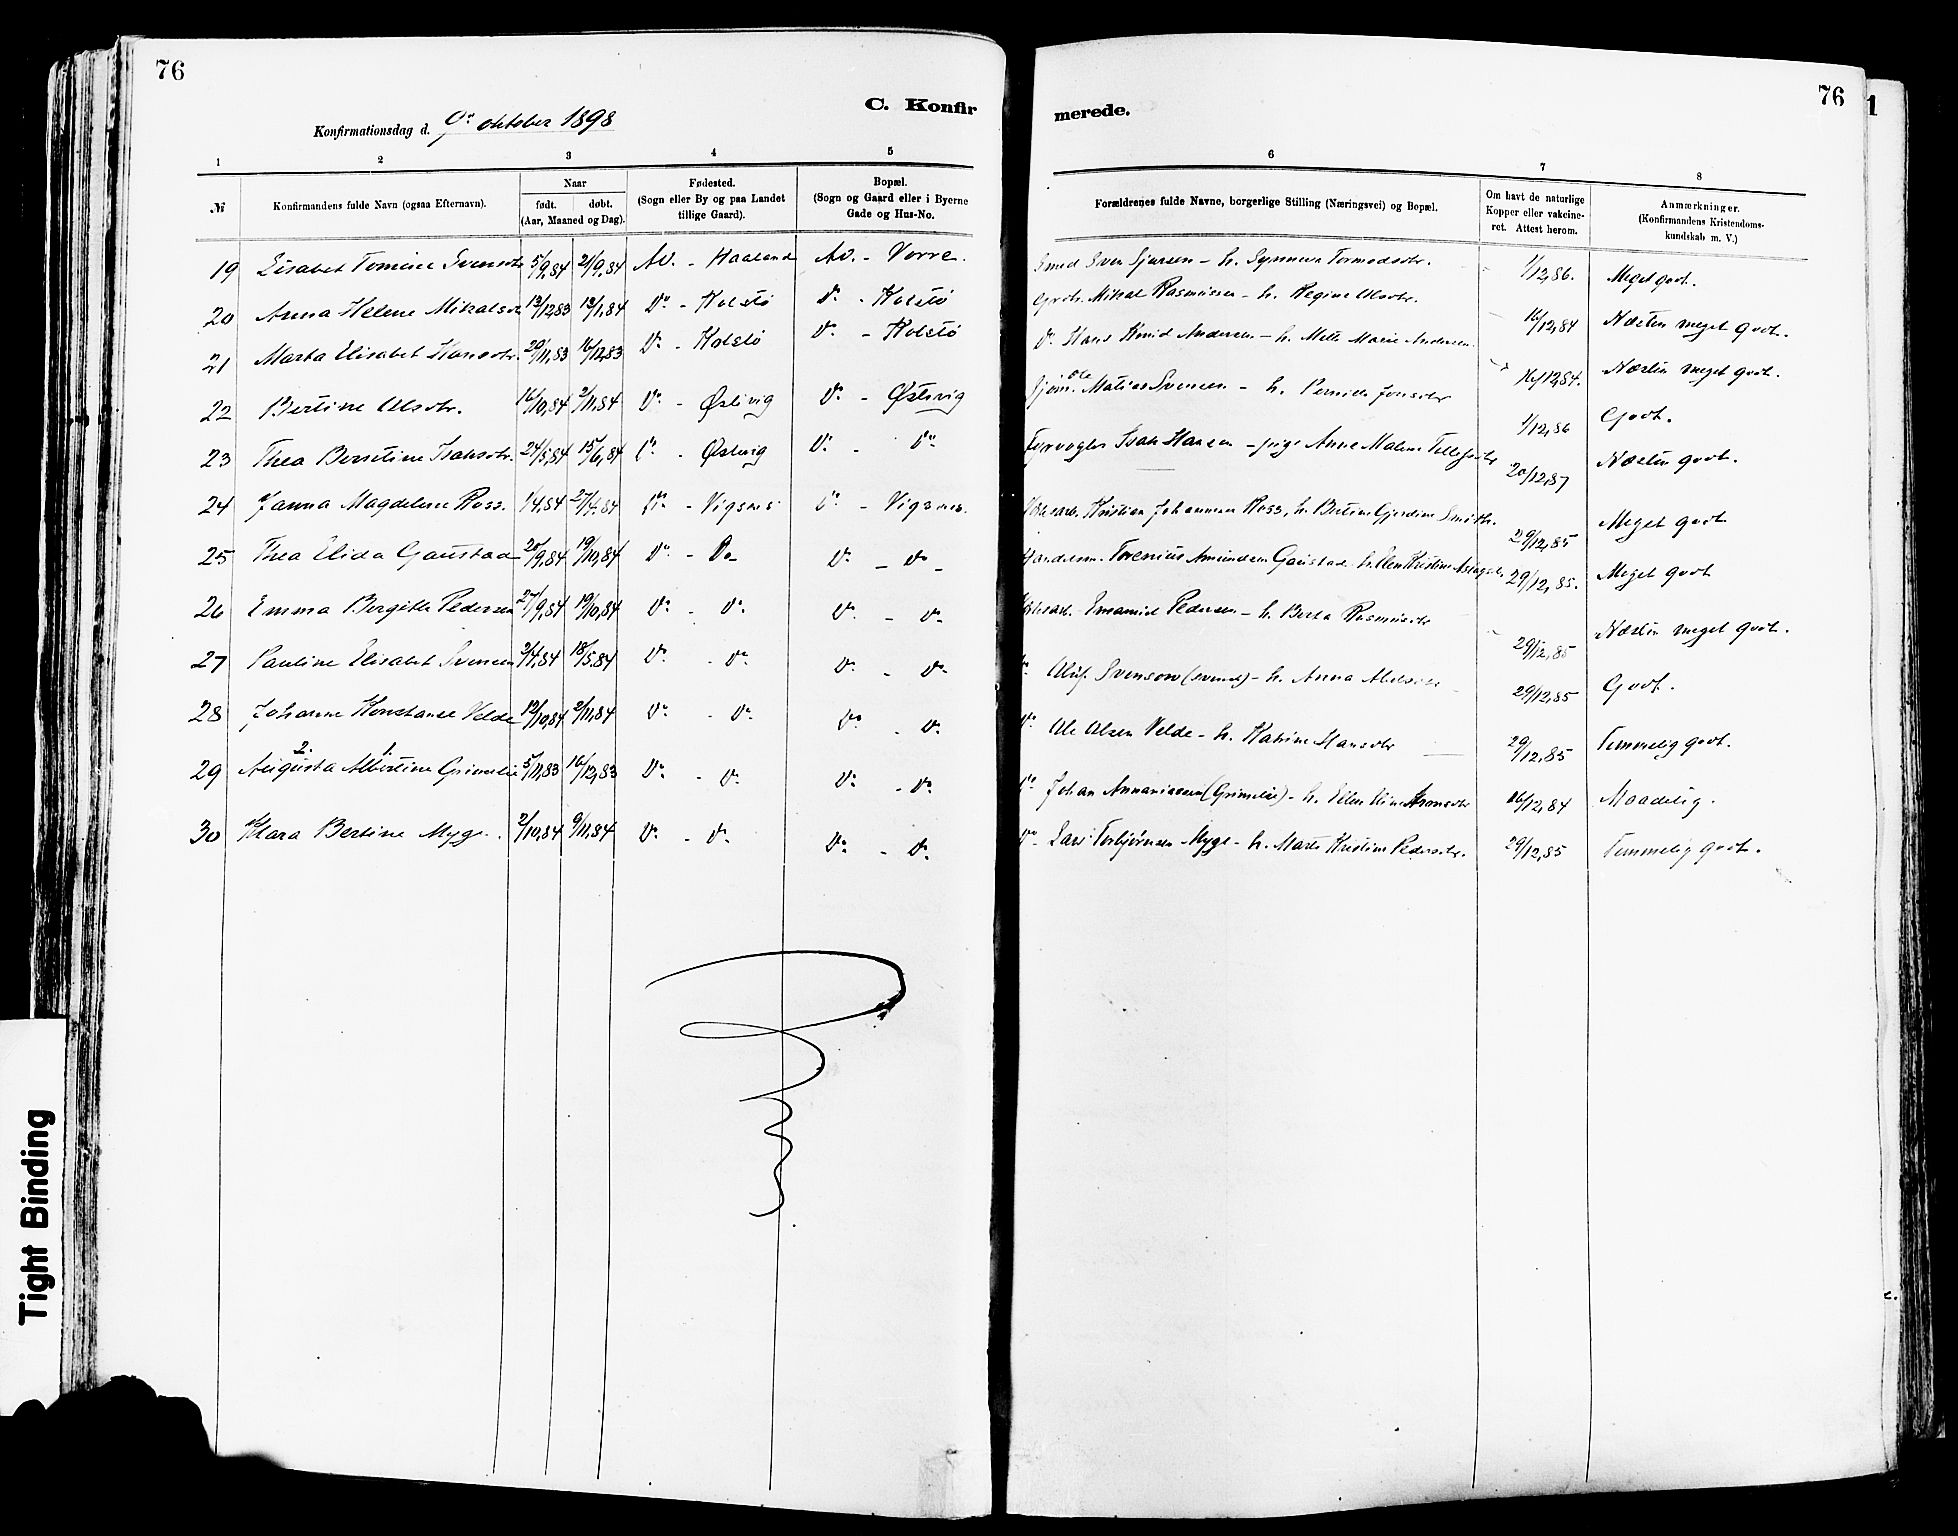 76
C. Konfir
Konfirmationsdag d. 9de oktober 1898
1 2 3 4 5
№ Konfirmandens fulde Navn (ogsaa Efternavn). Naar født. døbt. (Aar, Maaned og Dag). Fødested. (Sogn eller By og paa Landet tillige Gaard). Bopæl. (Sogn og Gaard eller i Byerne Gade og Hus-No.
19 Elisabet Tomine Svensdtr 5/9,84 21/9,84 Av. - Haaland Av. - Vorre.
20 Anna Helene Mikalsdtr 13/12,83 13/1,84 Do - Kolstö Do - Kolstö
21 Marta Elisabet Hansdtr. 20/11,83 16/12,83 Do - Kolstö Do - Kolstö
22 Bertine Olsdtr. 16/10,84 2/11,84 Do - Østvig Do - Østvig
23 Thea Berntine Isaksdtr. 24/5,84 15/6,84 Do - Østvig Do - Do
24 Janna Magdelene Ross. 1/4,84 27/4,84 Do - Vigsnes Do - Vigsnes.
25 Thea Elida Gaustad 20/9,84 19/10,84 Do - Do Do - Do -
26 Emma Bergitte Pedersen 27/9,84 19/10,84 Do - Do Do - Do
27 Pauline Elisabet Svensen 2/4,84 18/5,84 Do - Do Do - Do
28 Johanne Konstanse Velde 12/10,84 2/11,84 Do - Do Do - Do
29 Augusta 2. Albertine 1. Grimelie 5/11,83 16/12,83 Do - Do Do - Do
30 Klara Bertine Myge. 2/10,84 9/11,84 Do - Do Do - Do
76
merede.
6 7 8
Forældrenes fulde Navne, borgerlige Stilling (Næringsvei) og Bopæl. Om havt de naturlige Kopper eller vakcineret. Attest herom. Anmærkninger. (Konfirmandens Kristendomskundskab m. V.)
Smed Sven Sjursen - h. Synneva Tormodsdtr. 1/12,86. Meget godt.
Grdb. Mikal Rasmussen - h. Regine Olsdtr. 16/12,84 Næsten meget godt.
Do Hans Knud Andersen - h. Mette Marie Andersen. 16/12,84. Næsten meget godt.
Ole Matias Svensen - h. Pernille Jonsdtr 1/12,86 Godt.
Fyrvogter Isak Hansen - pige Anne Malene 20/12,87 Næsten godt.
Kristian Johannesen Ross, h. Bertine Gjerdine Smith. 29/12,85 Meget godt
Torenius Amundsen Gaustad - h. Elen Kristine 29/12,85. Meget godt
Emanuel Pedersen - h. Berta Rasmusdtr 29/12,85 Næsten meget godt.
Do Oluf Svenson (svensk) - h. Anna 29/12,85 Godt.
Do Ole Olsen Velde - h. Katrine Hansdtr 29/12,85 Temmelig godt.
Do Johan Annaniassen (Grimelie) - h. Ellen Eline 16/12,84 Maadelig.
Do Lars Torbjørnsen Myge - h. Marte Kristine Pedersdtr. 29/12,85 Temmelig godt.
Tight Binding